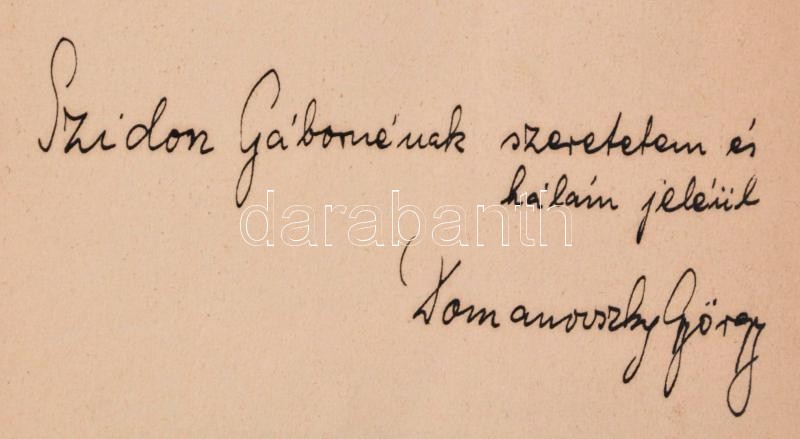 Szidon Gábornénak szeretetem és
hálám jeléül
darabanth
Domanovszky György